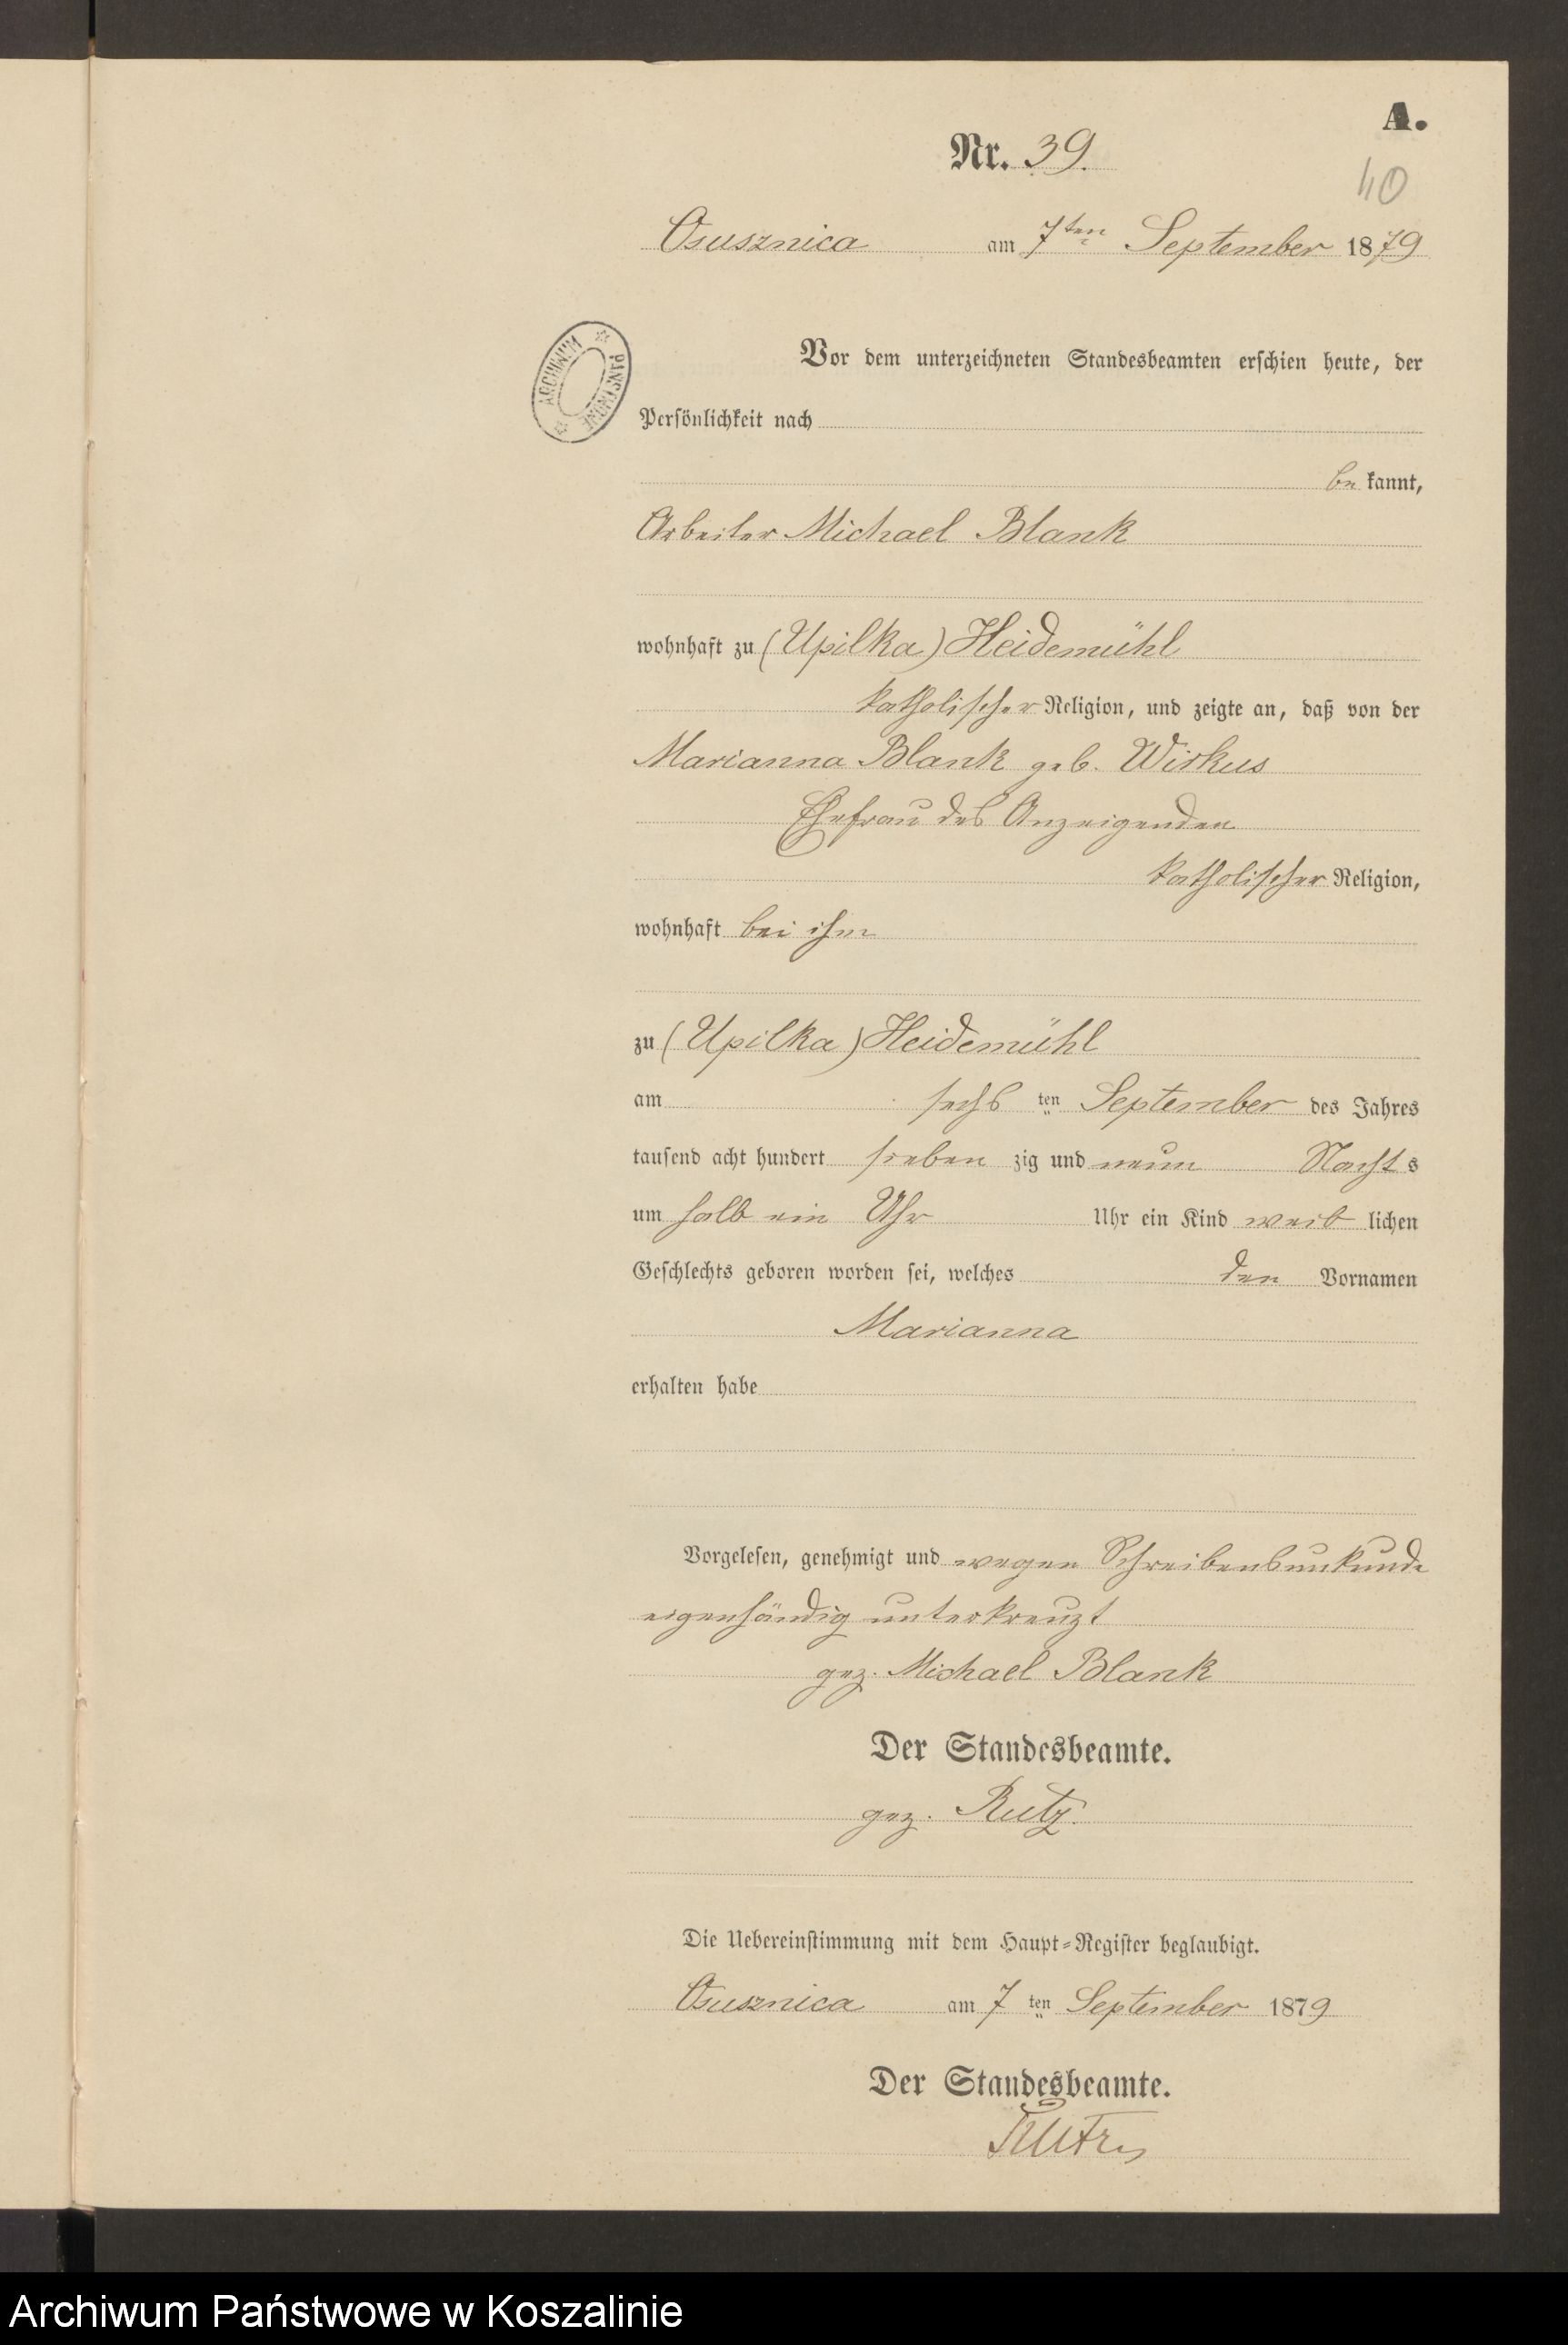 A.
Nr. 39.
40
Osusznica am 7ten September 1879
Vor dem unterzeichneten Standesbeamten erschien heute, der
Persönlichkeit nach
be kannt,
Arbeiter Michael Blank
wohnhaft zu (Upilka) Heidemühl
katholischer Religion, und zeigte an, daß von der
Marianna Blank geb. Wirkus
Ehefrau des Anzeigenden
katholischer Religion,
wohnhaft bei ihm
zu (Upilka) Heidemühl
am sechs ten September des Jahres
tausend acht hundert sieben zig und neun Nacht s
um halb ein Uhr Uhr ein Kind weib lichen
Geschlechts geboren worden sei, welches den Vornamen
Marianna
erhalten habe
Vorgelesen, genehmigt und wegen Schreibensunkunde
eigenhändig unterkreuzt
gez. Michael Blank
Der Standesbeamte.
gez. Rutz.
Die Uebereinstimmung mit dem Haupt-Register beglaubigt.
Osusznica am 7 ten September 1879
Der Standesbeamte.
ARCHIWUM PAŃSTWOWE
Archiwum Państwowe w Koszalinie